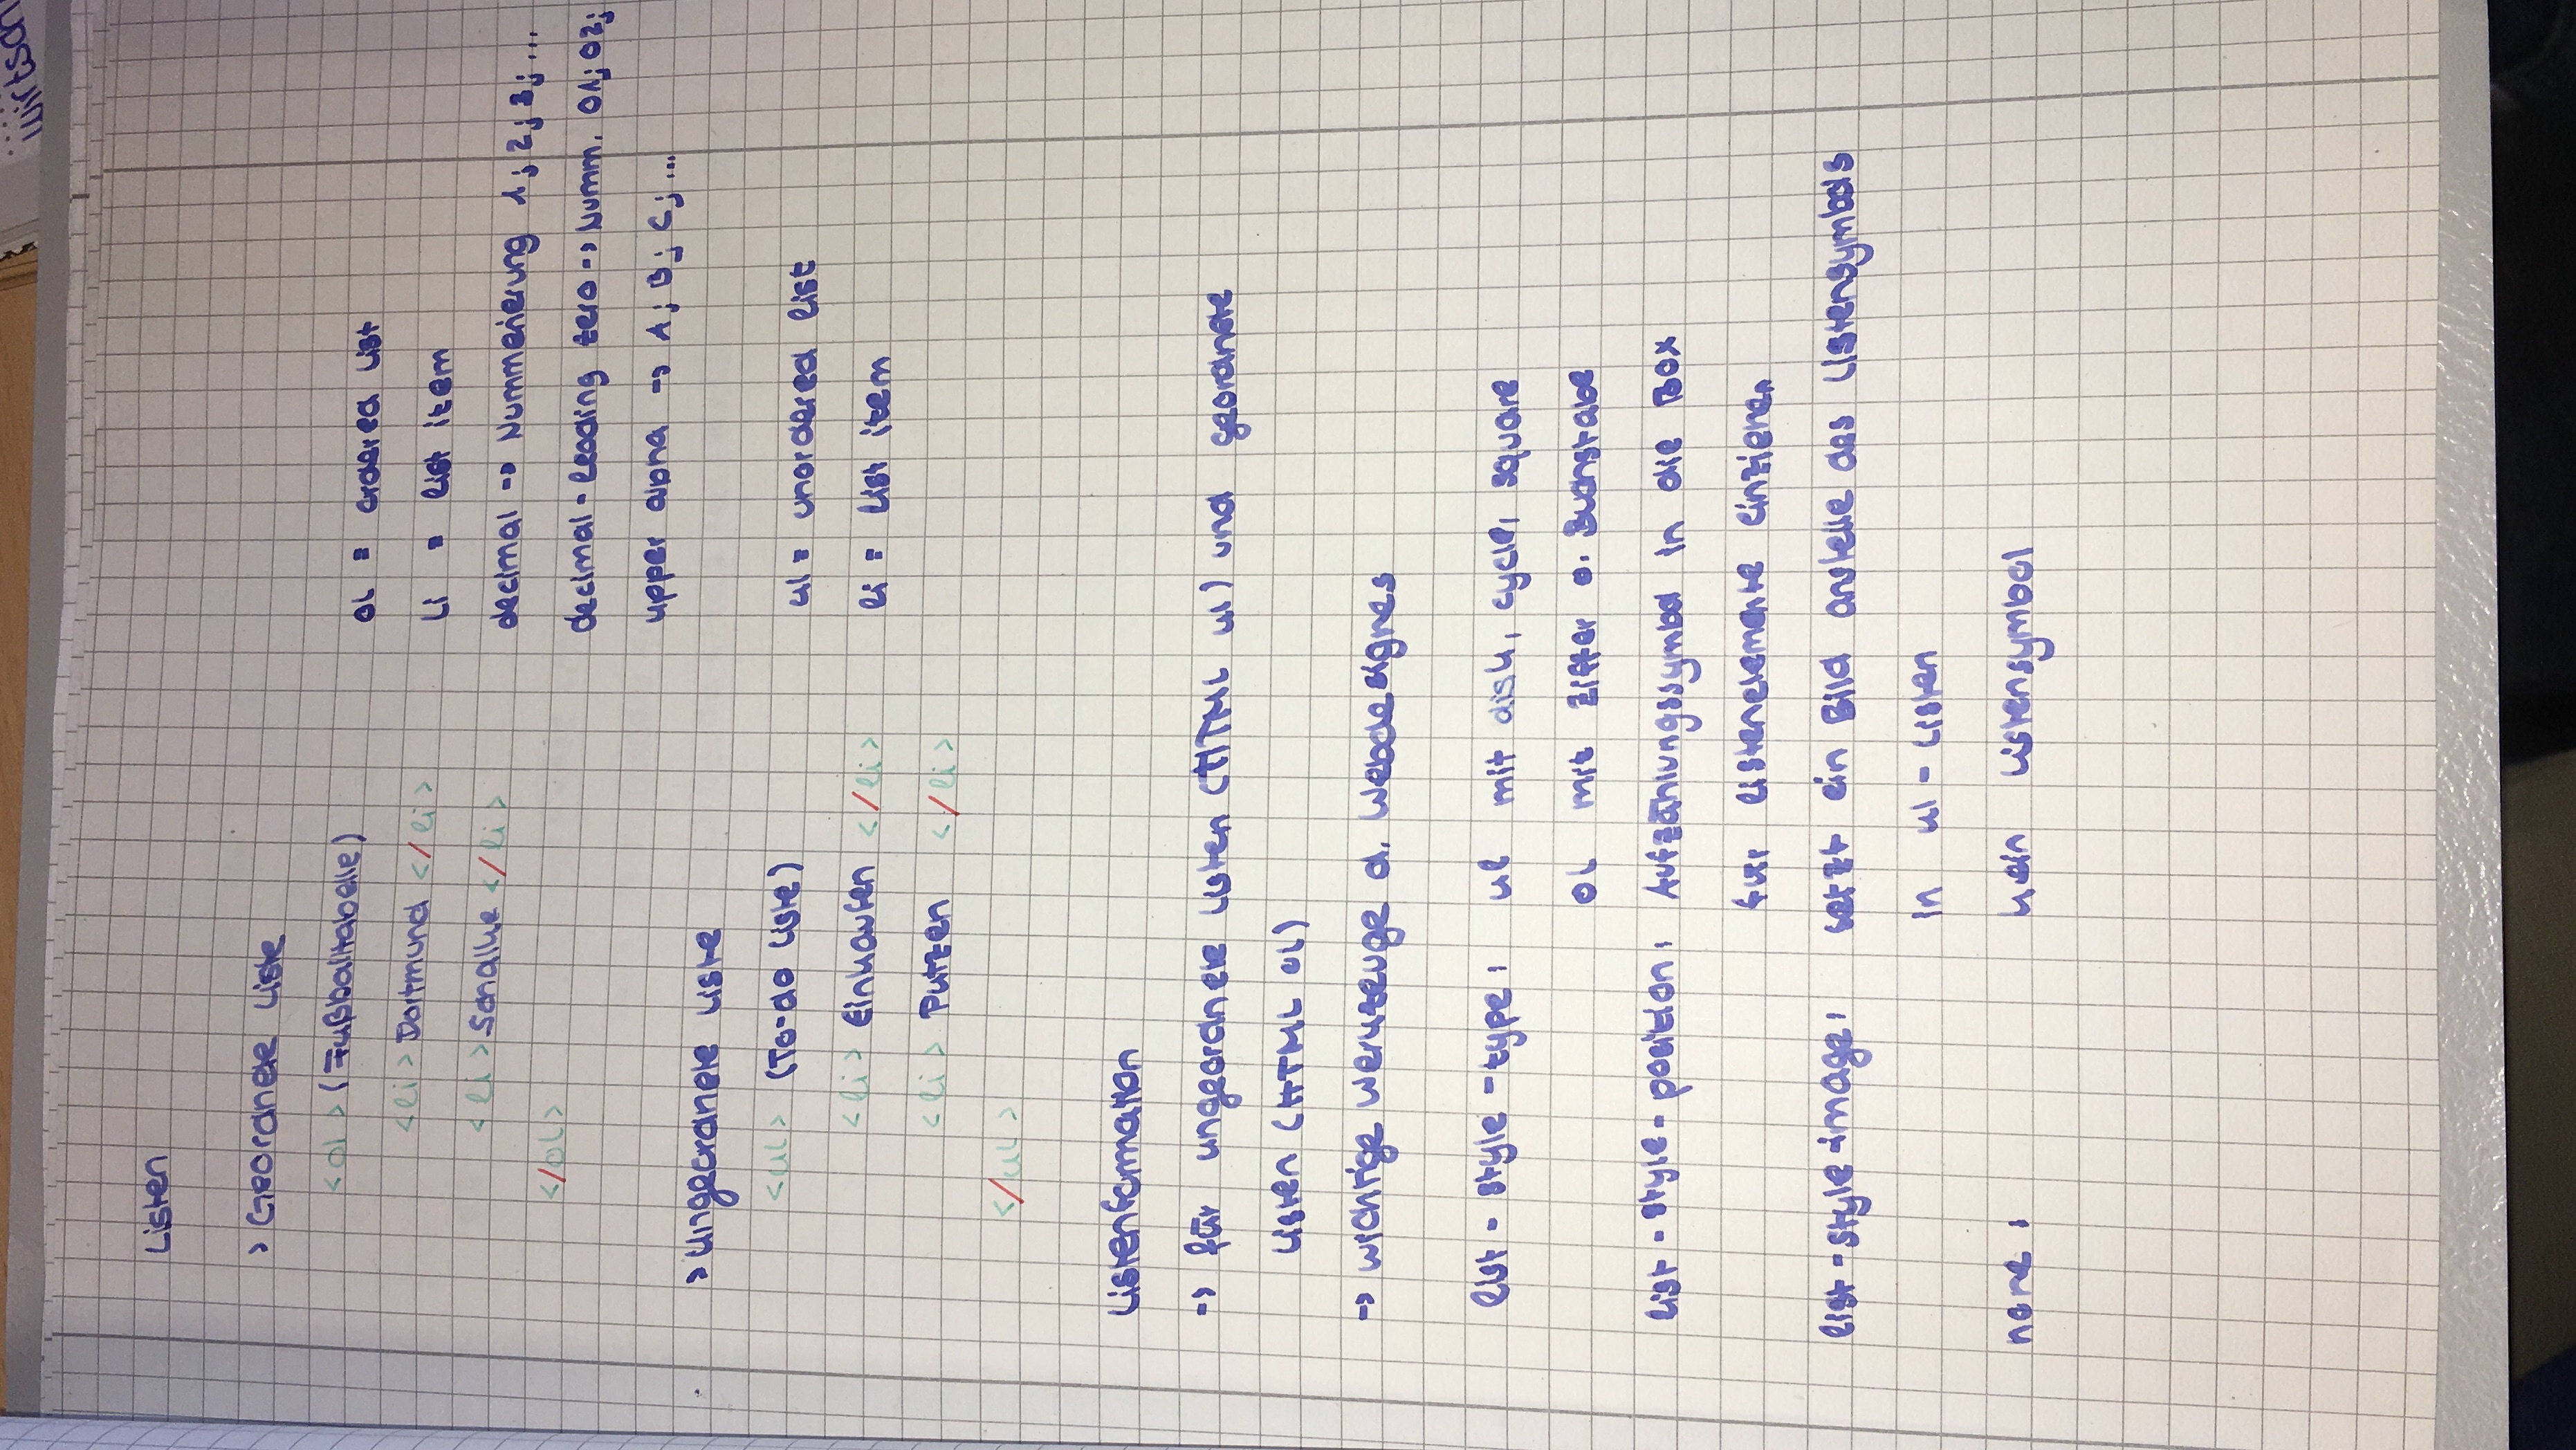 wirtsch
Listen
> Geordnete Liste
<ol> (Fußballtabelle)
<li> Dortmund </li>
<li> Schalke </li>
</ol>
ol = ordered list
li = list item
decimal -> Nummerierung 1; 2; 3; ...
decimal-leading zero -> Numm. 01; 02;
upper alpha -> A; B; C; ...
> ungeordnete Liste
<ul> (To-do Liste)
<li> Einkaufen </li>
<li> Putzen </li>
</ul>
ul = unordered list
li = list item
Listenformation
-> für ungeordnete Listen (HTML ul) und geordnete
Listen (HTML ol)
-> wichtige Werkzeuge d. Webdesignes
list-style-type: ul mit disk, cycle, square
ol mit Ziffer o. Buchstabe
list-style-position: Aufzählungssymbol in die Box
für Listenelemente einziehen
list-style-image: setzt ein Bild anstelle des Listensymbols
in ul-Listen
none: kein Listensymbol